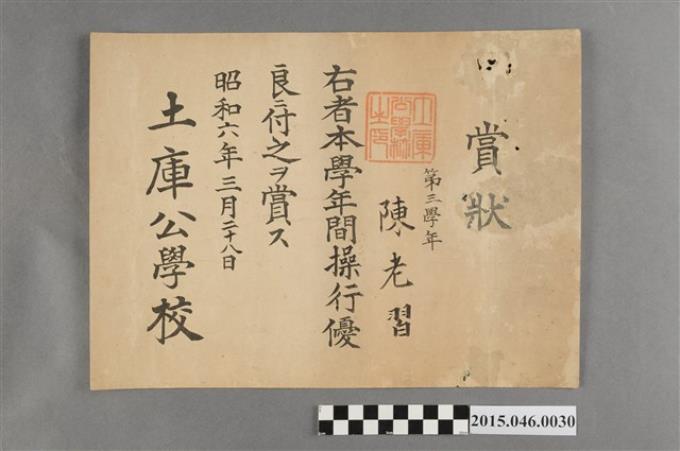 賞狀
第三學年
陳老習
右者本學年間操行優
良ニ付之ヲ賞ス
昭和六年三月二十八日
土庫公學校
土庫
公學校
之印
2015.046.0030